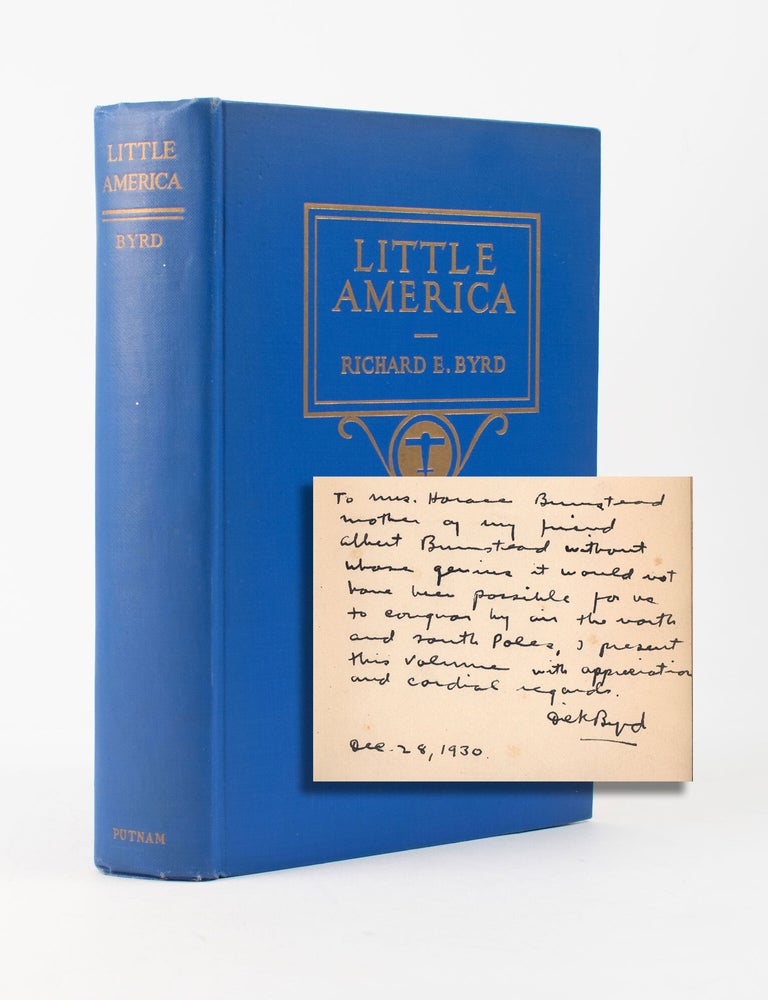 LITTLE
AMERICA
BYRD
PUTNAM
LITTLE
AMERICA
RICHARD E. BYRD
To Mrs. Horace Bumstead
mother of my friend
Albert Bumstead without
whose genius it would not
have been possible for us
to conquer by air the north
and south Poles, I present
this volume with appreciation
and cordial regards.
Dick Byrd
Dec. 28, 1930.